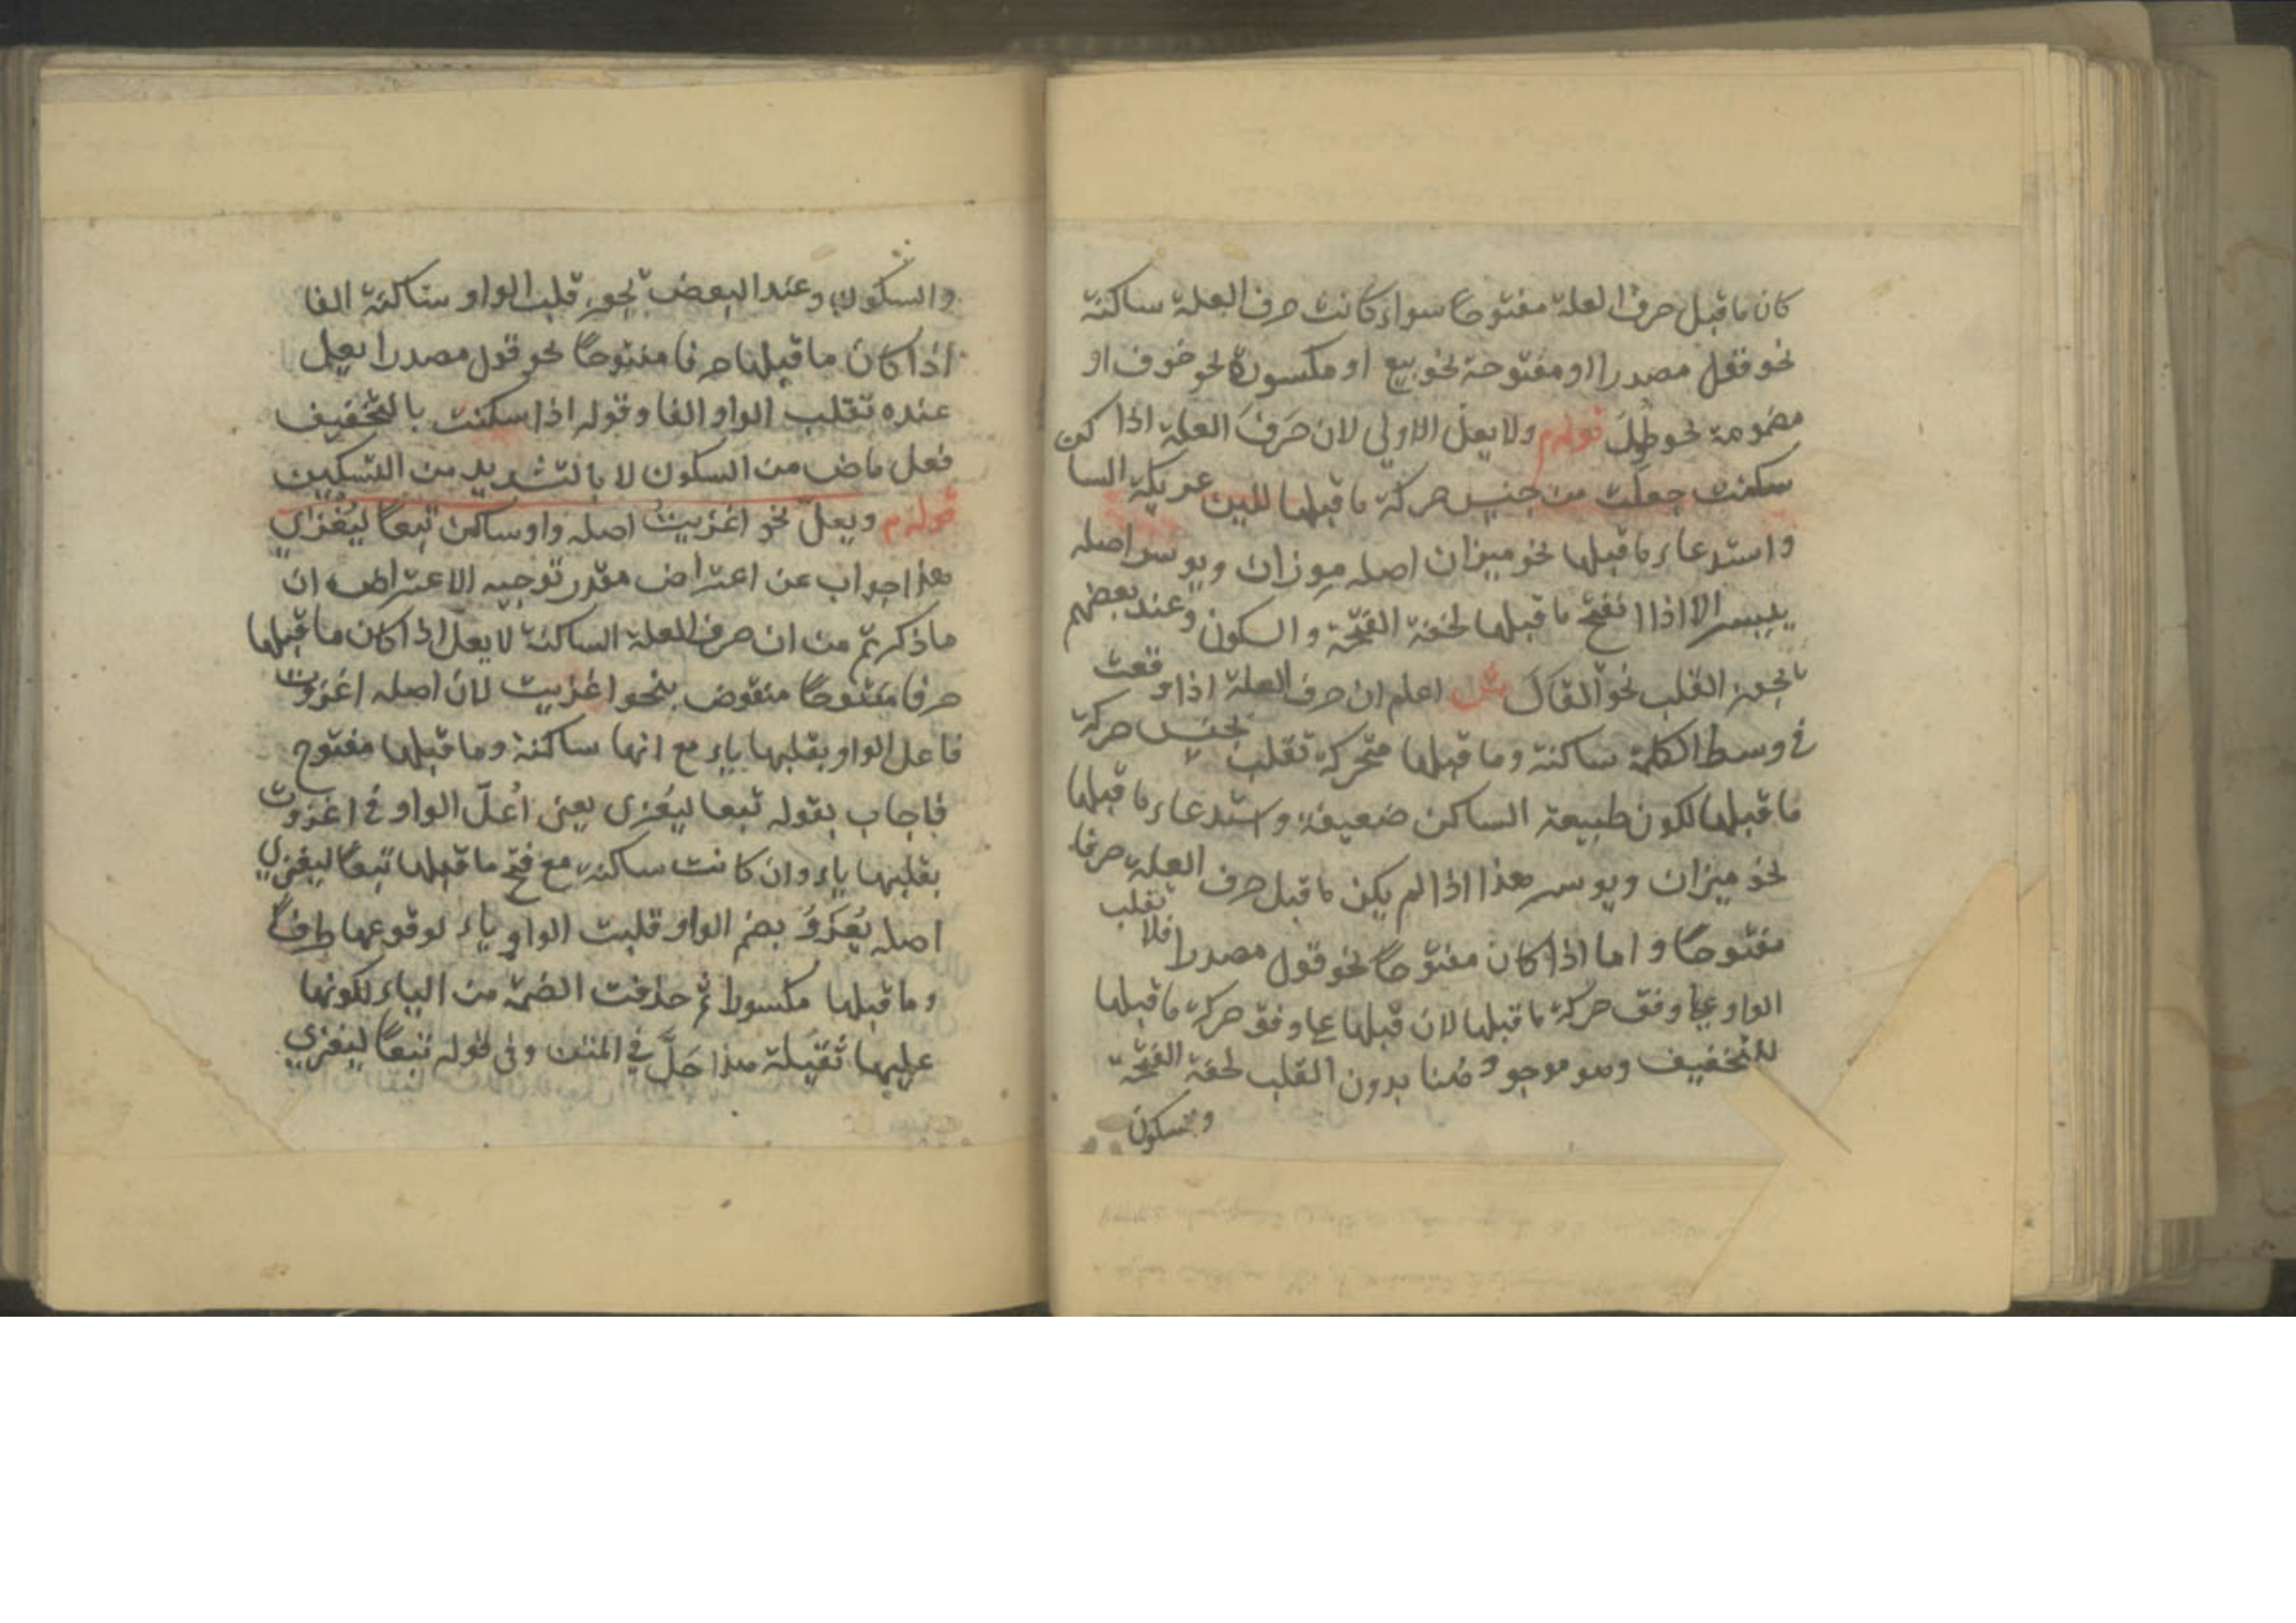 كان ما قبل حرف العلة مفتوحا سواء كانت حرف العلة ساكنة
نحو قول مصدرا او مفتوحة نحو بيع او مكسورة نحو خوف او
مضمومة نحو طول قوله م ولا يعل الاولى لان حرف العلة اذا
سكنت جعلت من جنس حركة ما قبلها للين عريكة الساكن
واستدعاء ما قبلها نحو ميزان اصله موزان ويوسر اصله
ييسر الا اذا انفتح ما قبلها لخفة الفتحة والسكون وعند بعضهم
يجوز القلب نحو القال ش اعلم ان حرف العلة اذا وقعت
في وسط الكلمة ساكنة وما قبلها متحركة تقلب بجنس حركة
ما قبلها لكون طبيعة الساكن ضعيفة واستدعاء ما قبلها
نحو ميزان ويوسر هذا اذا لم يكن ما قبل حرف العلة حرفا
مفتوحا واما اذا كان مفتوحا نحو قول مصدرا فلا يقلب
الواو على وفق حركة ما قبلها لان قبلها على وفق حركة ما قبلها
للتخفيف وهو موجود هنا بدون القلب لخفة الفتحة
والسكون
والسكون وعند البعض يجوز قلب الواو ساكنة الفا
اذا كان ما قبلها حرفا مفتوحا نحو قول مصدرا يعل
عنده تقلب الواو الفا وقوله اذا سكنت بالتخفيف
فعل ماض من السكون لا بالتشديد من التسكين
قوله م ويعل نحو اغزيت اصله واو ساكن تبعا ليغزي
هذا جواب عن اعتراض مقدر توجيه الاعتراض ان
ما ذكرتم من ان حرف العلة الساكنة لا يعل اذا كان ما قبلها
حرفا مفتوحا منقوض بنحو اغزيت لان اصله اغزوت
فاعل الواو بقلبها ياء مع انها ساكنة وما قبلها مفتوح
فاجاب بقوله تبعا ليغزى يعنى اعل الواو في اغزوت
بقلبها ياء وان كانت ساكنة مع فتح ما قبلها تبعا ليغزي
اصله يغزو بضم الواو قلبت الواو ياء لوقوعها طرفا
وما قبلها مكسورا ثم حذفت الضمة من الياء لكونها
عليها ثقيلة هذا حل في المتن وفى قوله تبعا ليغزي